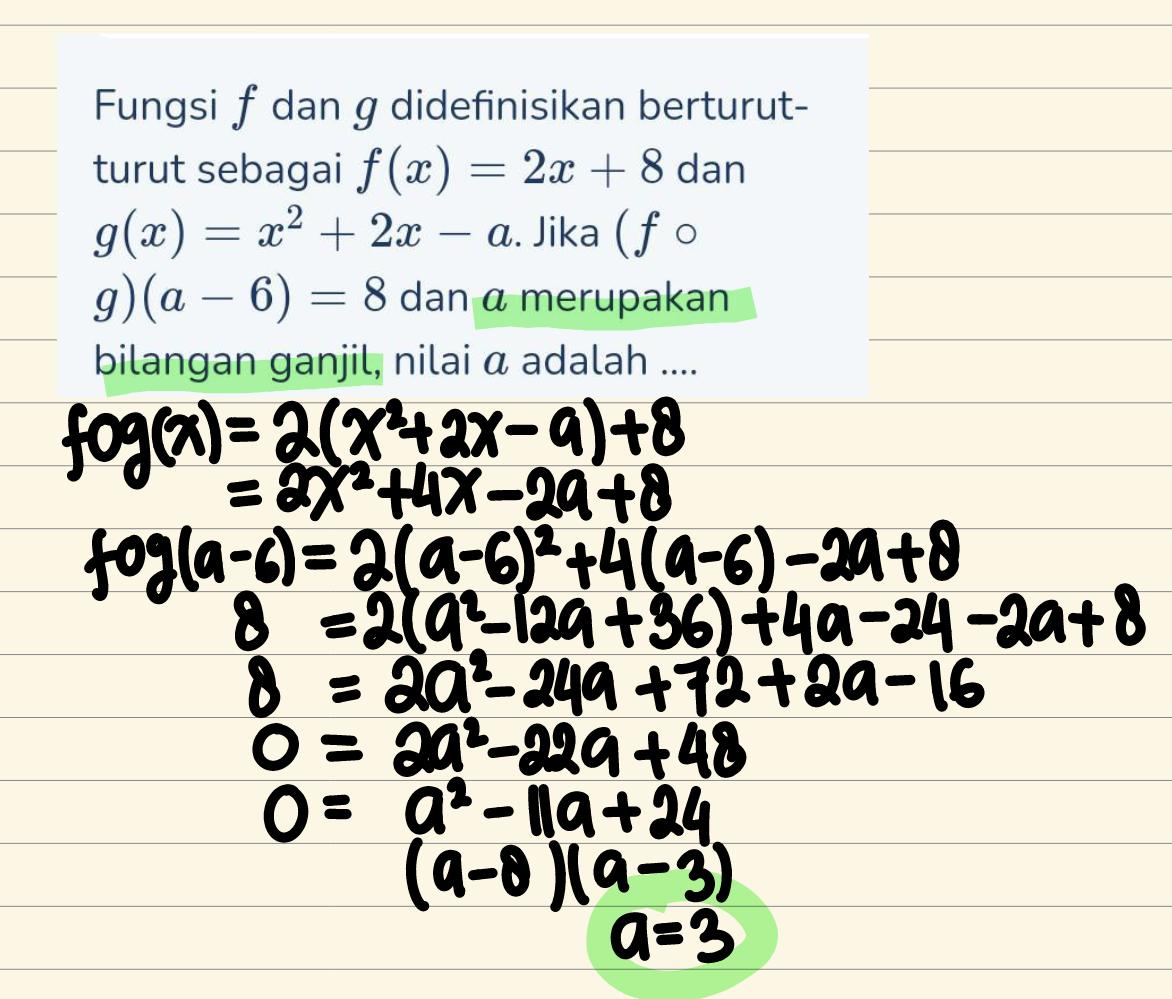 Fungsi f dan g didefinisikan berturut-
turut sebagai f(x) = 2x + 8 dan
g(x) = x² + 2x − a. Jika (f ∘
g)(a − 6) = 8 dan a merupakan
bilangan ganjil, nilai a adalah ....
fog(x) = 2(x²+2x−a)+8
= 2x²+4x−2a+8
fog(a−6) = 2(a−6)²+4(a−6)−2a+8
8 = 2(a²−12a+36)+4a−24−2a+8
8 = 2a²−24a+72+2a−16
0 = 2a²−22a+48
0 = a²−11a+24
(a−8)(a−3)
a=3